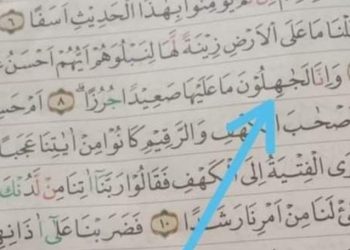 يُؤْمِنُوْا بِهٰذَا الْحَدِيْثِ اَسَفًا ٦
لْنَا مَا عَلَى الْاَرْضِ زِيْنَةً لَّهَا لِنَبْلُوَهُمْ اَيُّهُمْ اَحْسَنُ
وَاِنَّا لَجٰهِلُوْنَ مَا عَلَيْهَا صَعِيْدًا جُرُزًاۗ ٨ اَمْ حَسِ
صْحٰبَ الْكَهْفِ وَالرَّقِيْمِ كَانُوْا مِنْ اٰيٰتِنَا عَجَبًا
ى الْفِتْيَةُ اِلَى الْكَهْفِ فَقَالُوْا رَبَّنَآ اٰتِنَا مِنْ لَّدُنْكَ
ئْ لَنَا مِنْ اَمْرِنَا رَشَدًا ١٠ فَضَرَبْنَا عَلٰٓى اٰذَانِهِ